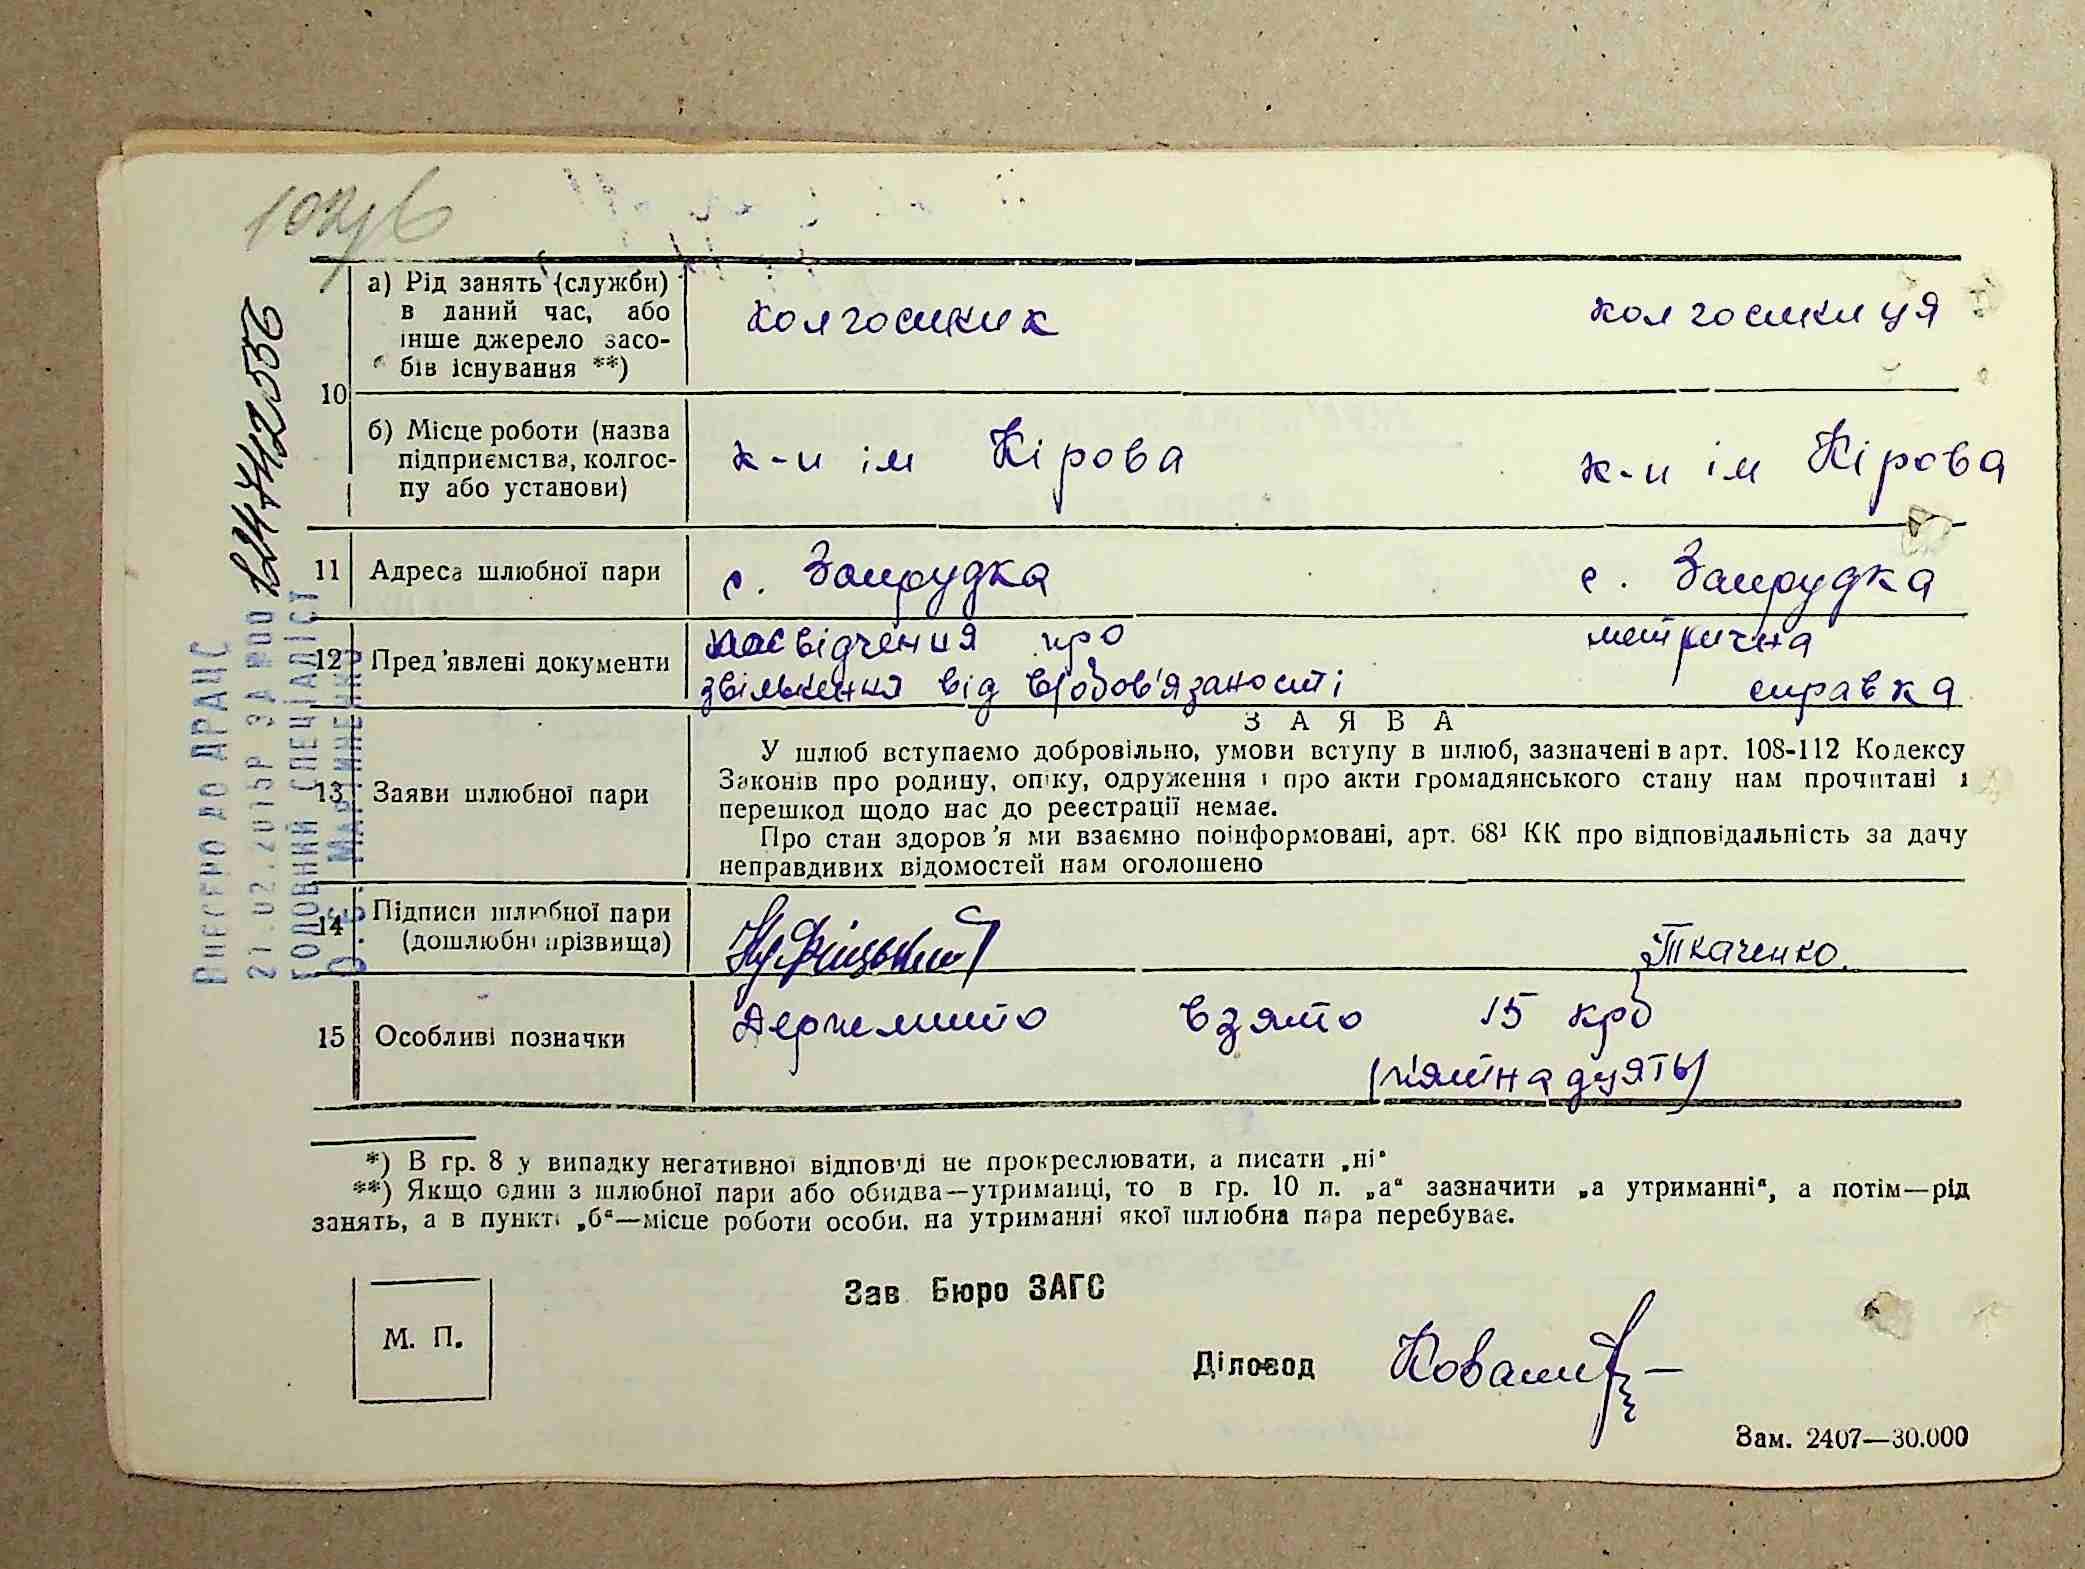 102/6
а) Рід занять (служби)
в даний час, або
інше джерело засо-
бів існування **)
колгоспник колгоспниця
10
б) Місце роботи (назва
підприємства, колгос-
пу або установи)
к-п ім Кірова к-п ім Кірова
11 Адреса шлюбної пари с. Запрудка с. Запрудка
12 Пред'явлені документи
посвідчення про метрична
звільнення від в/обов'язаності справка
ЗАЯВА
13 Заяви шлюбної пари
У шлюб вступаємо добровільно, умови вступу в шлюб, зазначені в арт. 108-112 Кодексу
Законів про родину, опіку, одруження і про акти громадянського стану нам прочитані і
перешкод щодо нас до реєстрації немає.
Про стан здоров'я ми взаємно поінформовані, арт. 68¹ КК про відповідальність за дачу
неправдивих відомостей нам оголошено
14 Підписи шлюбної пари
(дошлюбні прізвища)
Ткаченко
15 Особливі позначки
Держмито взято 15 крб
(п'ятнадцять)
*) В гр. 8 у випадку негативної відповіді не прокреслювати, а писати „ні"
**) Якщо один з шлюбної пари або обидва—утриманці, то в гр. 10 п. „а" зазначити „а утриманні", а потім—рід
занять, а в пункті „б"—місце роботи особи, на утриманні якої шлюбна пара перебуває.
Зав. Бюро ЗАГС
М. П.
Діловод
Зам. 2407—30.000
Внесено до ДРАЦС
27.02.2015р за №00 124742556
Головний спеціаліст
О.Є. Мартиненко